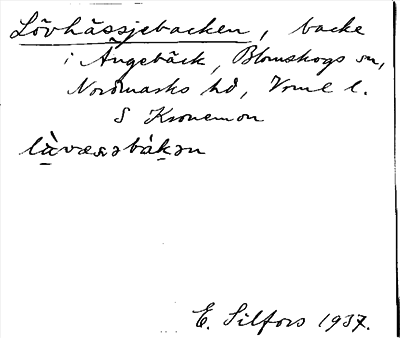 Lövhässjebacken, backe
i Ängebäck, Blomskogs sn,
Nordmarks hd, Vrml l.
S Kronemon
E. Silfors 1937.